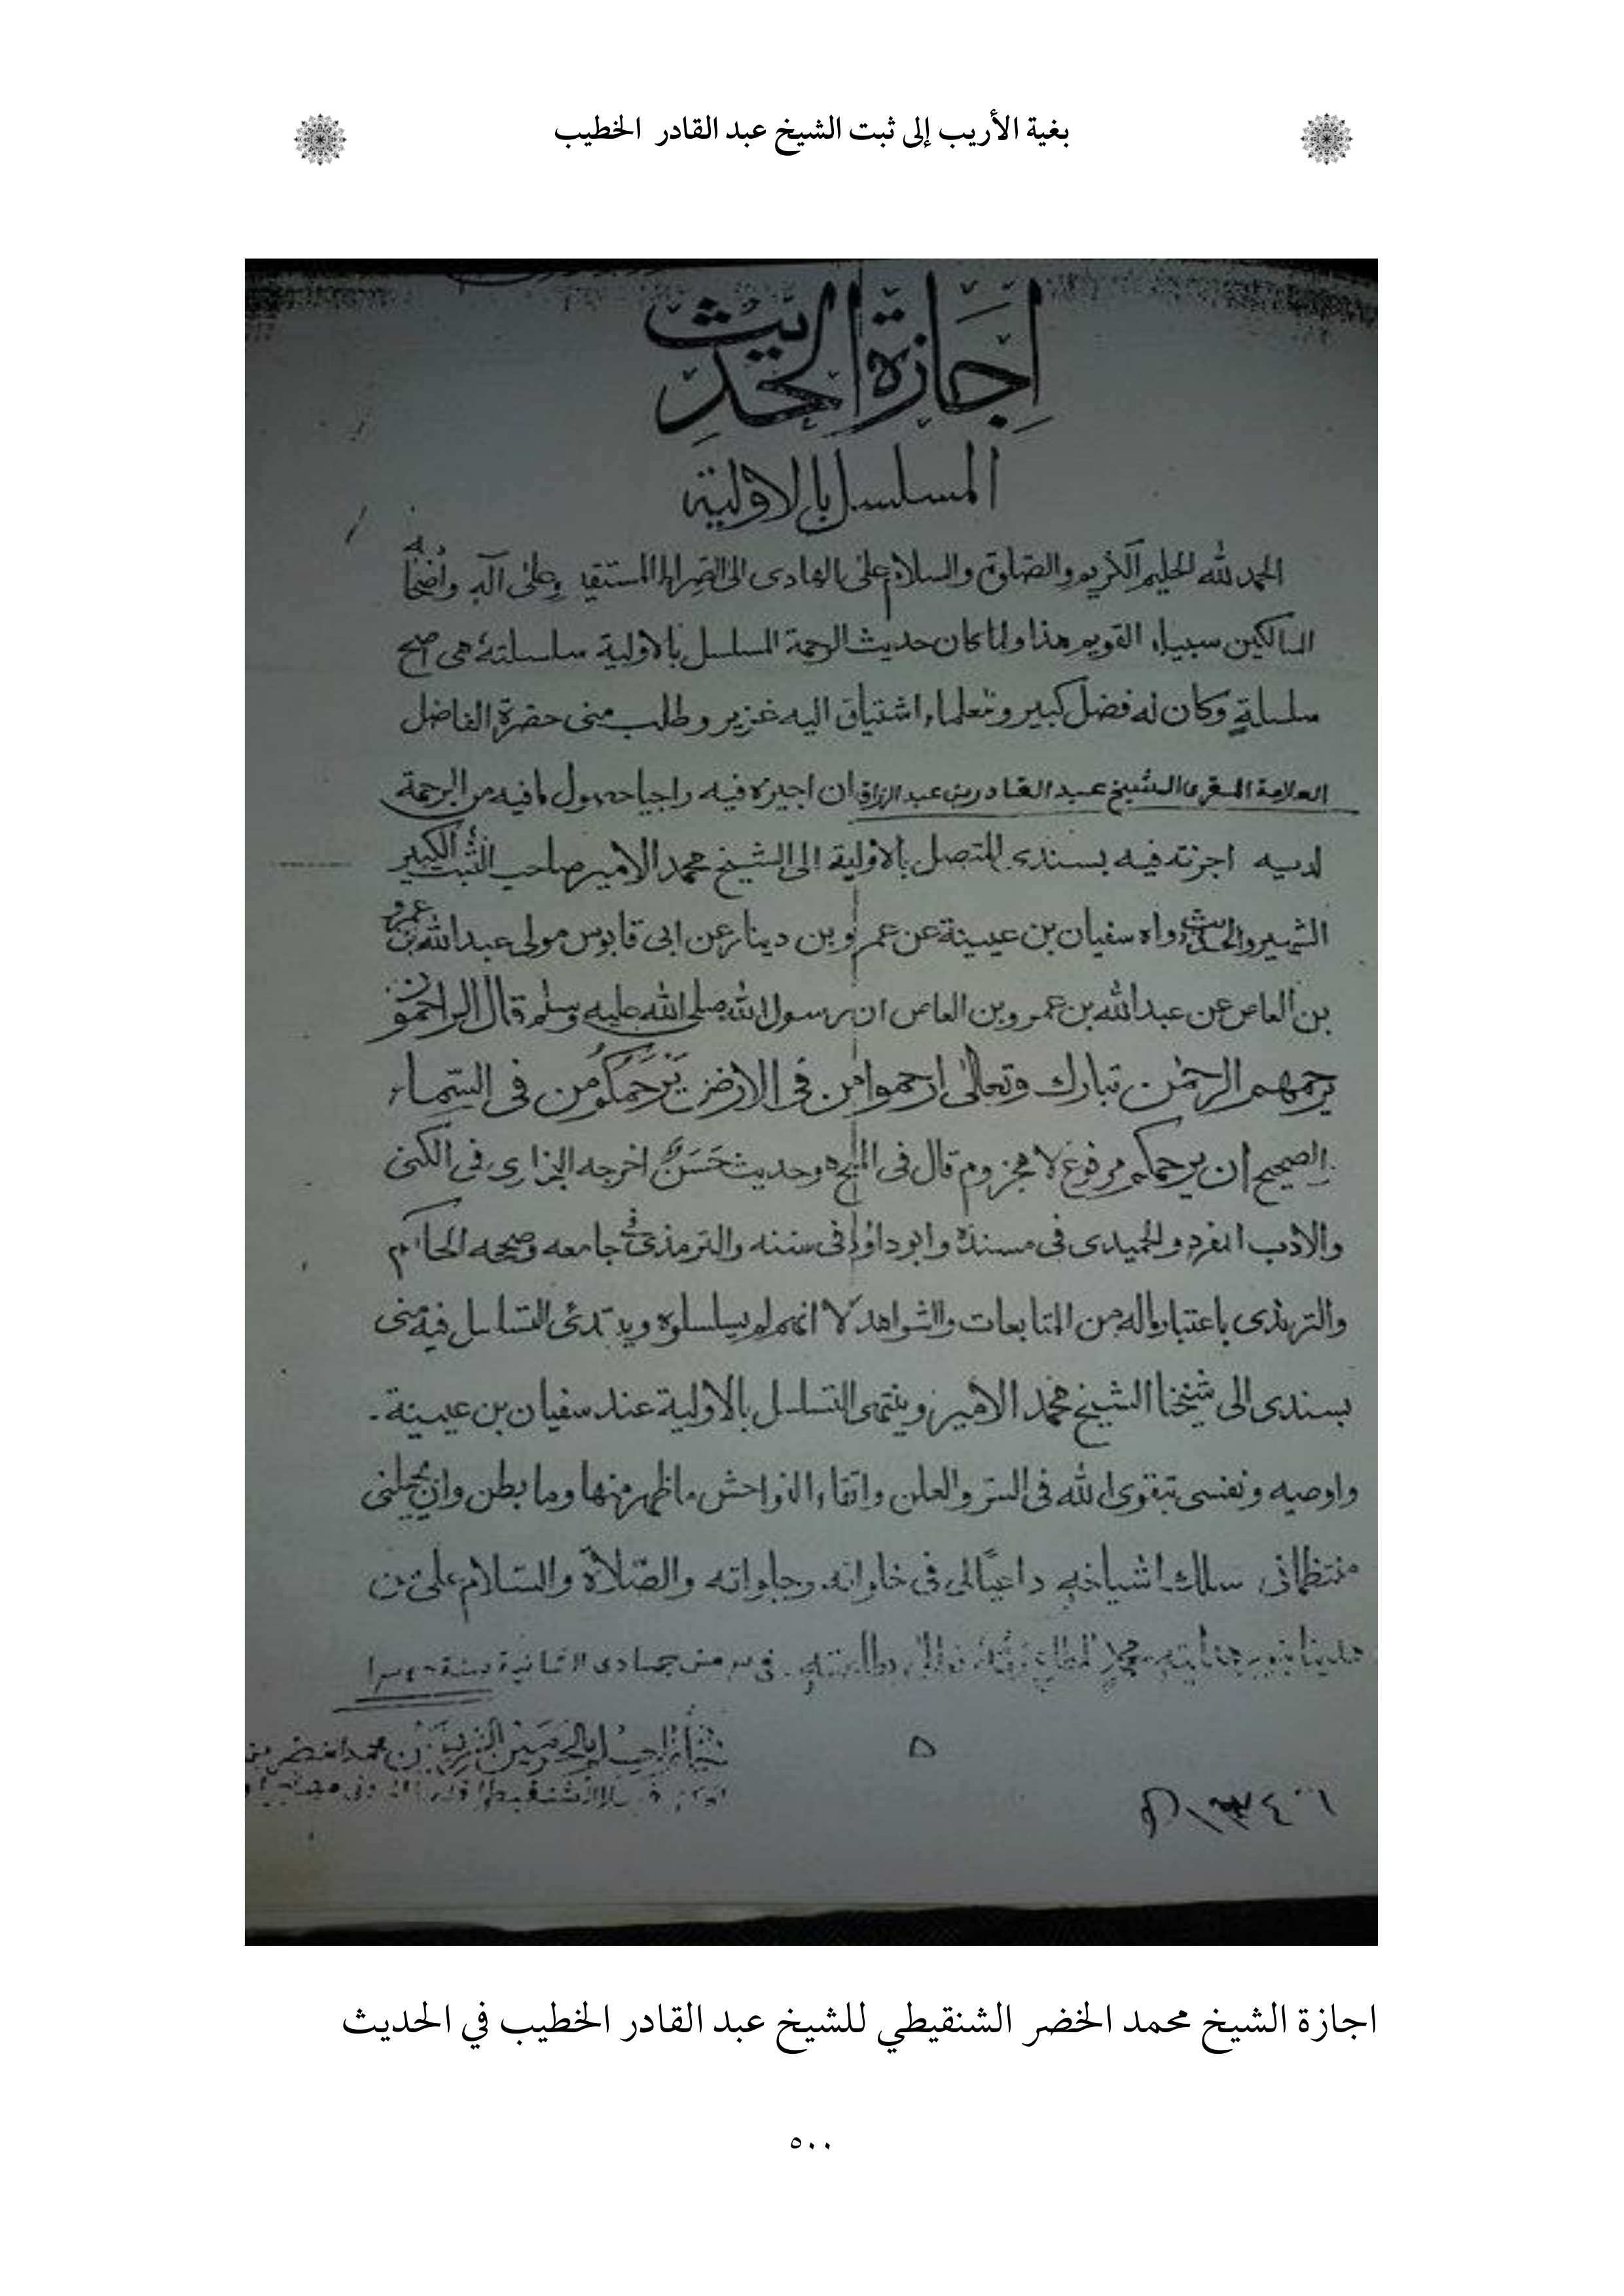 بغية الأريب إلى ثبت الشيخ عبد القادر الخطيب
اجازة الحديث
المسلسل بالاولية
الحمد لله الحليم الكريم والصلوة والسلام على الهادى الى الصراط المستقيم وعلى آله واصحابه
السالكين سبيله القويم هذا ولما كان حديث الرحمة المسلسل بالاولية سلسلته هى اصح
سلسلةٍ وكان له فضل كبير وللعلماء اشتياق اليه غزير وطلب منى حضرة الفاضل
العلامة المقرى الشيخ عبد القادر بن عبد الرزاق ان اجيزه فيه راجيا حصول مافيه من الرحمة
لديه اجزته فيه بسندى المتصل بالاولية الى الشيخ محمد الامير صاحب الثبت الكبير
الشهير والحديث رواه سفيان بن عيينة عن عمرو بن دينار عن ابى قابوس مولى عبد الله بن عمرو
بن العاص عن عبد الله بن عمرو بن العاص ان رسول الله صلى الله عليه وسلم قال الراحمون
يرحمهم الرحمن تبارك وتعالى ارحموا من فى الارض يَرْحَمُكُم من فى السماء
الصحيح ان يرحمكم مرفوع لا مجزوم قال فى وحديث حَسَنٌ اخرجه البخارى فى الكنى
والادب المفرد والحميدى فى مسنده وابو داؤد فى سننه والترمذى فى جامعه وصححه الحاكم
والترمذى باعتبار ماله من المتابعات والشواهد لا انهم لم يسلسلوه ويبتدئ التسلسل فيه منى
بسندى الى شيخنا الشيخ محمد الامير وينتهى التسلسل بالاولية عند سفيان بن عيينة.
واوصيه ونفسى بتقوى الله فى السر والعلن واتقاء الفواحش ماظهر منها وما بطن وان يجعلنى
منتظما فى سلك اشياخه داعيًا لى فى خلواته وجلواته والصلاة والسلام على من
هدينا بنور هدايته محمد فى جمادى الثانية سنة
بالحرمين الشريفين محمد الخضر بن
الشنقيطى
١٣٤٦ ھ
اجازة الشيخ محمد الخضر الشنقيطي للشيخ عبد القادر الخطيب في الحديث
٥٠٠